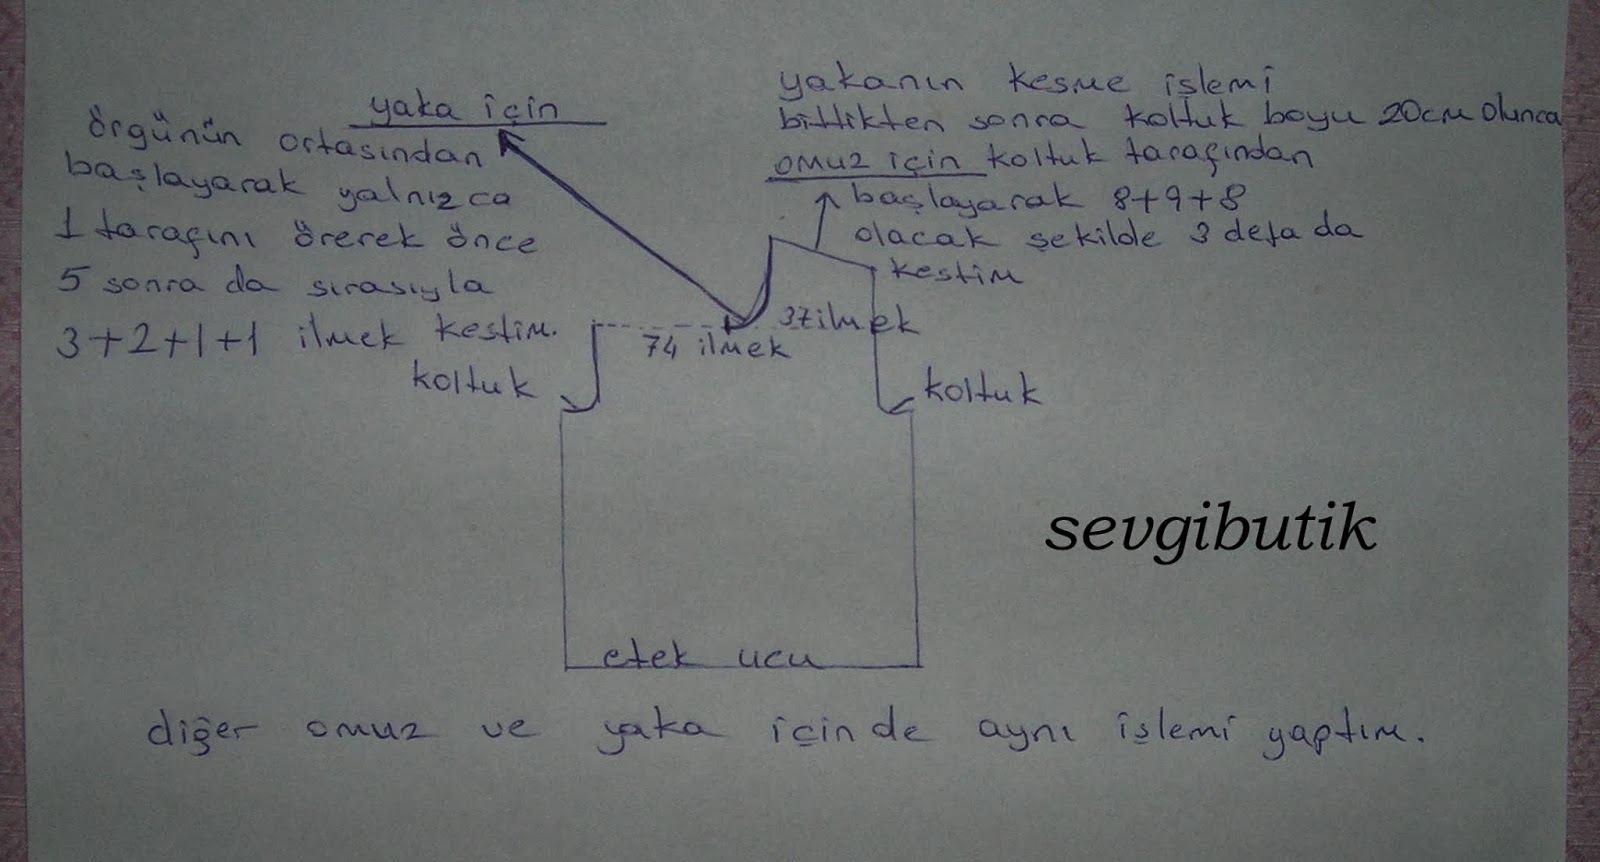 yaka için
örgünün ortasından
başlayarak yalnızca
1 tarafını örerek önce
5 sonra da sırasıyla
3+2+1+1 ilmek kestim.
yakanın kesme işlemi
bittikten sonra koltuk boyu 20cm olunca
omuz için koltuk tarafından
başlayarak 8+9+8
olacak şekilde 3 defa da
kestim
37 ilmek
74 ilmek
koltuk
koltuk
sevgibutik
etek ucu
diğer omuz ve yaka içinde aynı işlemi yaptım.